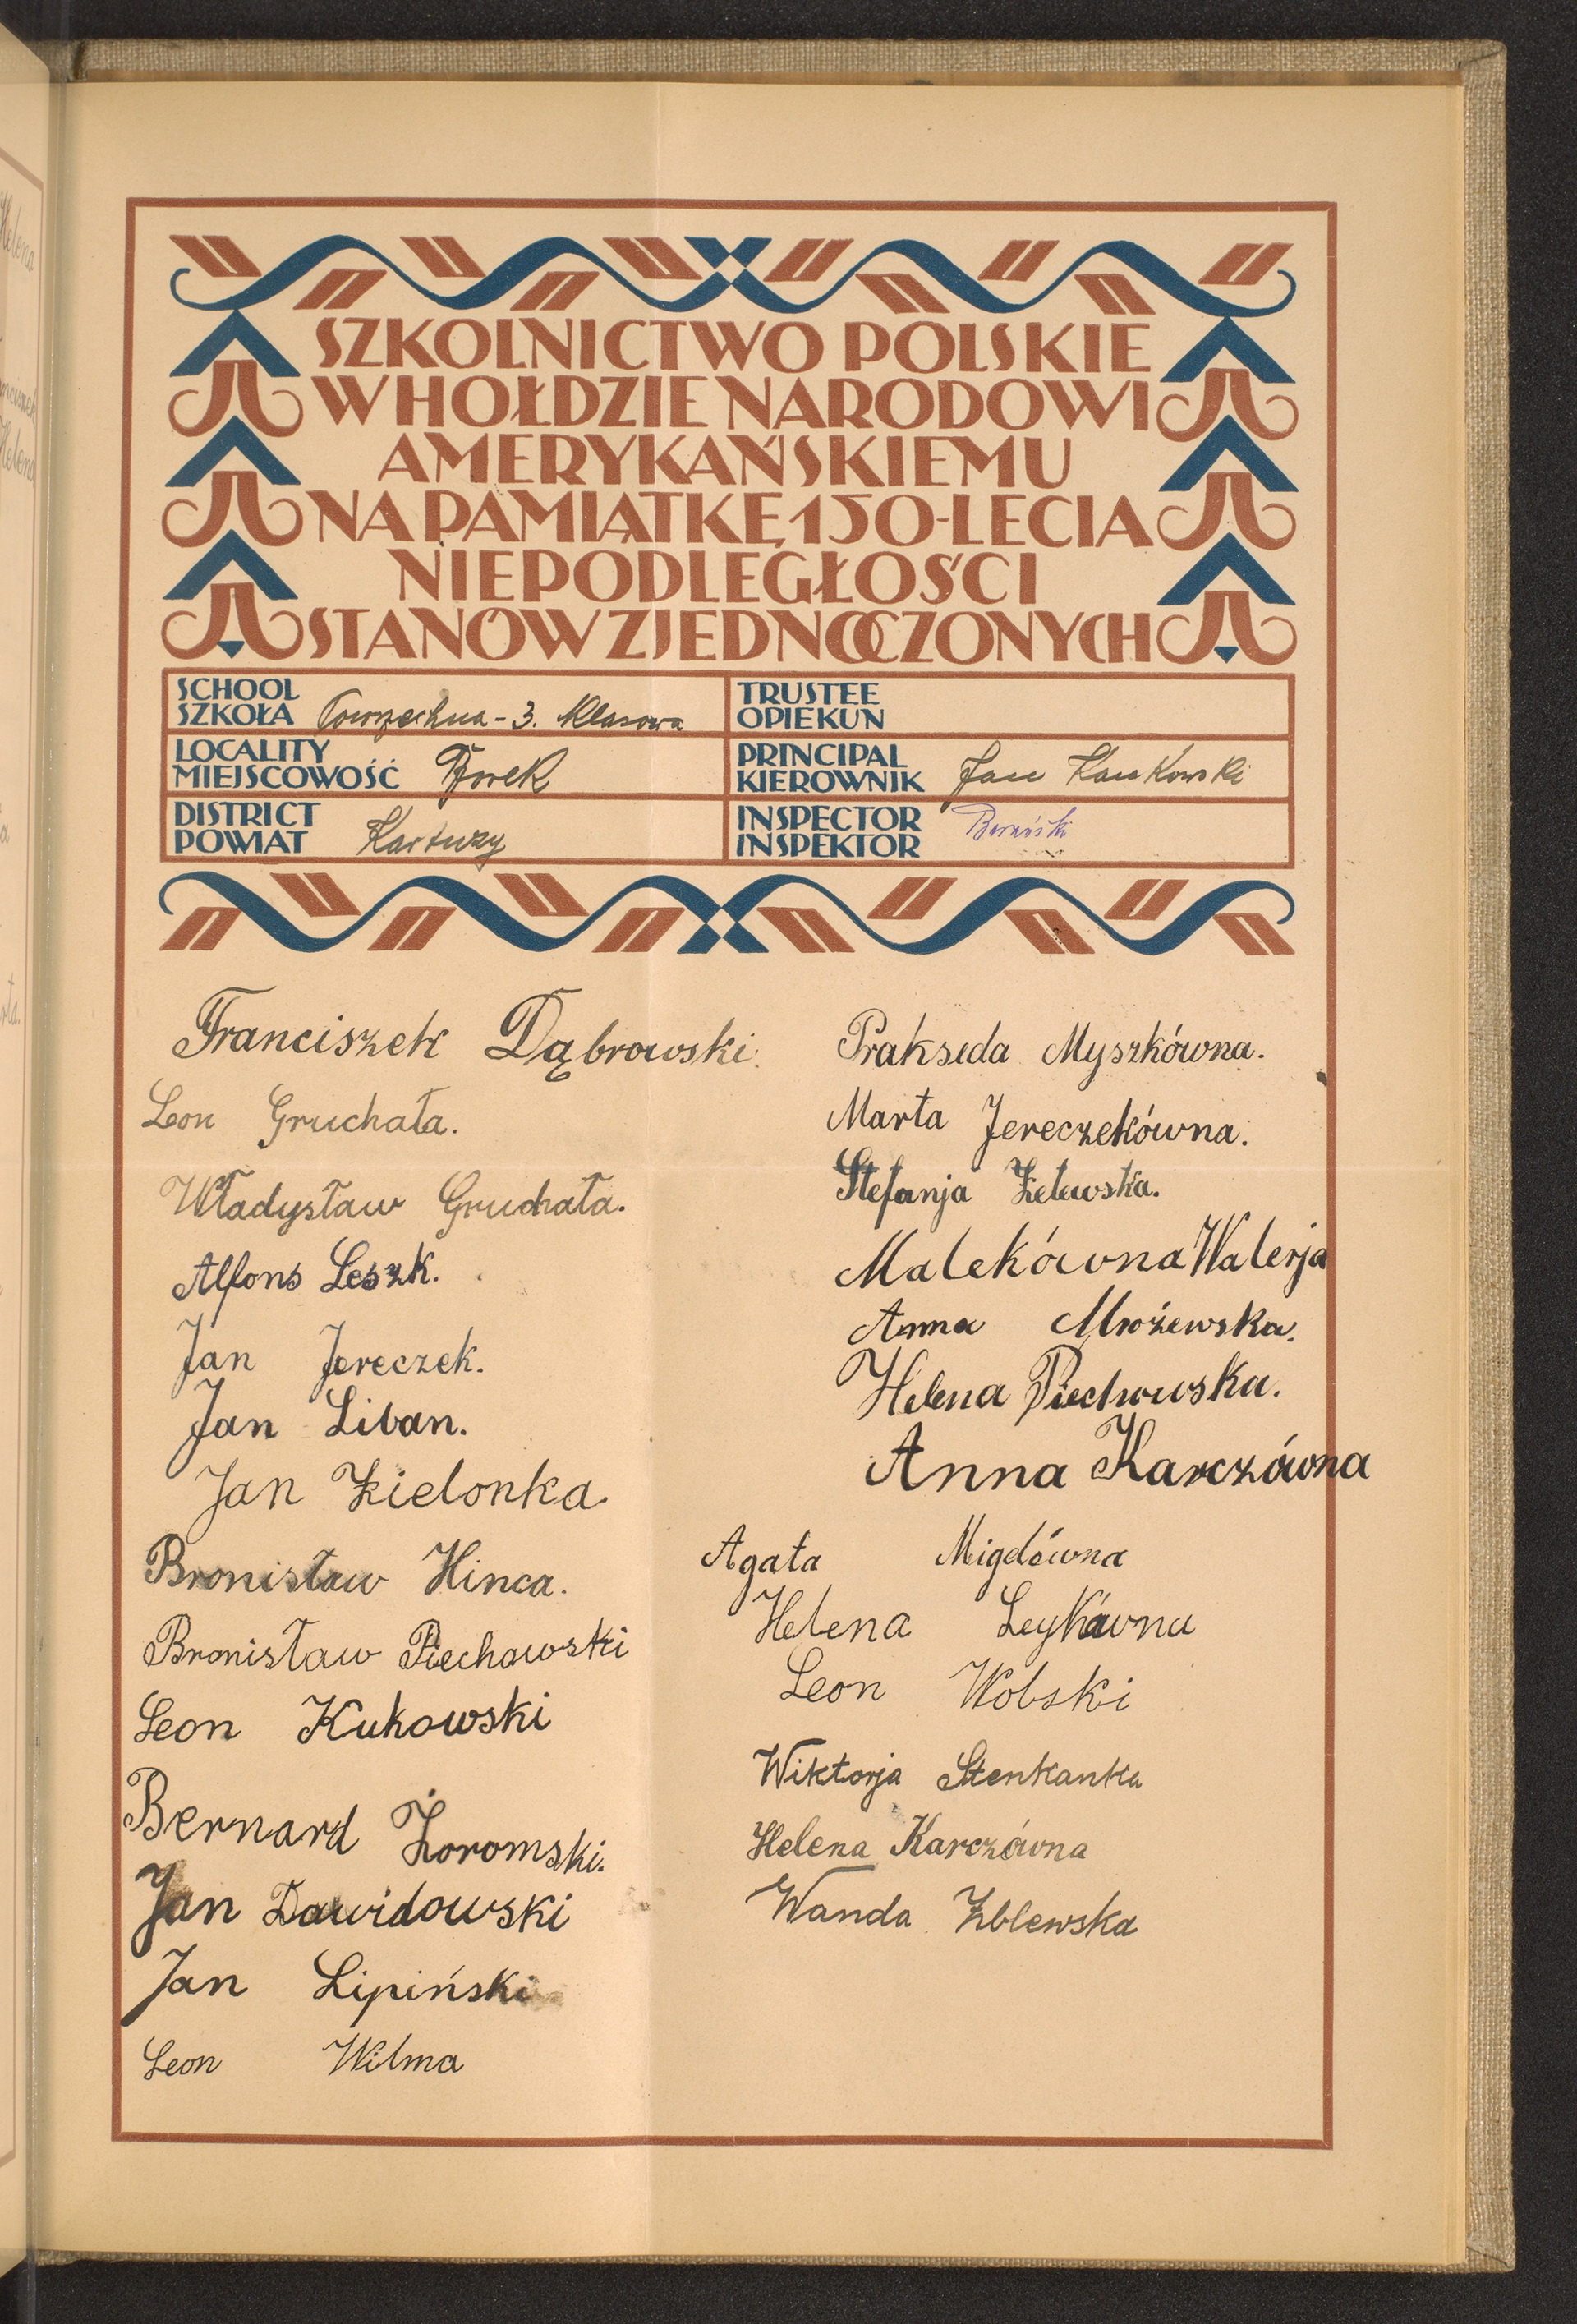 SZKOLNICTWO POLSKIE
W HOŁDZIE NARODOWI
AMERYKAŃSKIEMU
NA PAMIĄTKĘ 150-LECIA
NIEPODLEGŁOŚCI
STANÓW ZJEDNOCZONYCH
SCHOOL
SZKOŁA Powszechna - 3. Klasowa
TRUSTEE
OPIEKUN
LOCALITY
MIEJSCOWOŚĆ Borek
PRINCIPAL
KIEROWNIK Jan Kankowski
DISTRICT
POWIAT Kartuzy
INSPECTOR
INSPEKTOR
Franciszek Dąbrowski.
Leon Gruchała.
Władysław Gruchała.
Alfons Leszk.
Jan Jereczek.
Jan Liban.
Jan Zielonka.
Bronisław Hinca.
Bronisław Piechowski
Leon Kukowski
Bernard Żoromski.
Jan Dawidowski
Jan Lipiński
Leon Wilma
Prakseda Myszkówna.
Marta Jereczekówna.
Stefanja Zelewska.
Malekówna Walerja
Anna Mrożewska.
Helena Piechowska.
Anna Karczówna
Agata Migdówna
Helena Leykówna
Leon Wolski
Wiktorja Stenkanka
Helena Karczówna
Wanda Zblewska
Helena
Helena